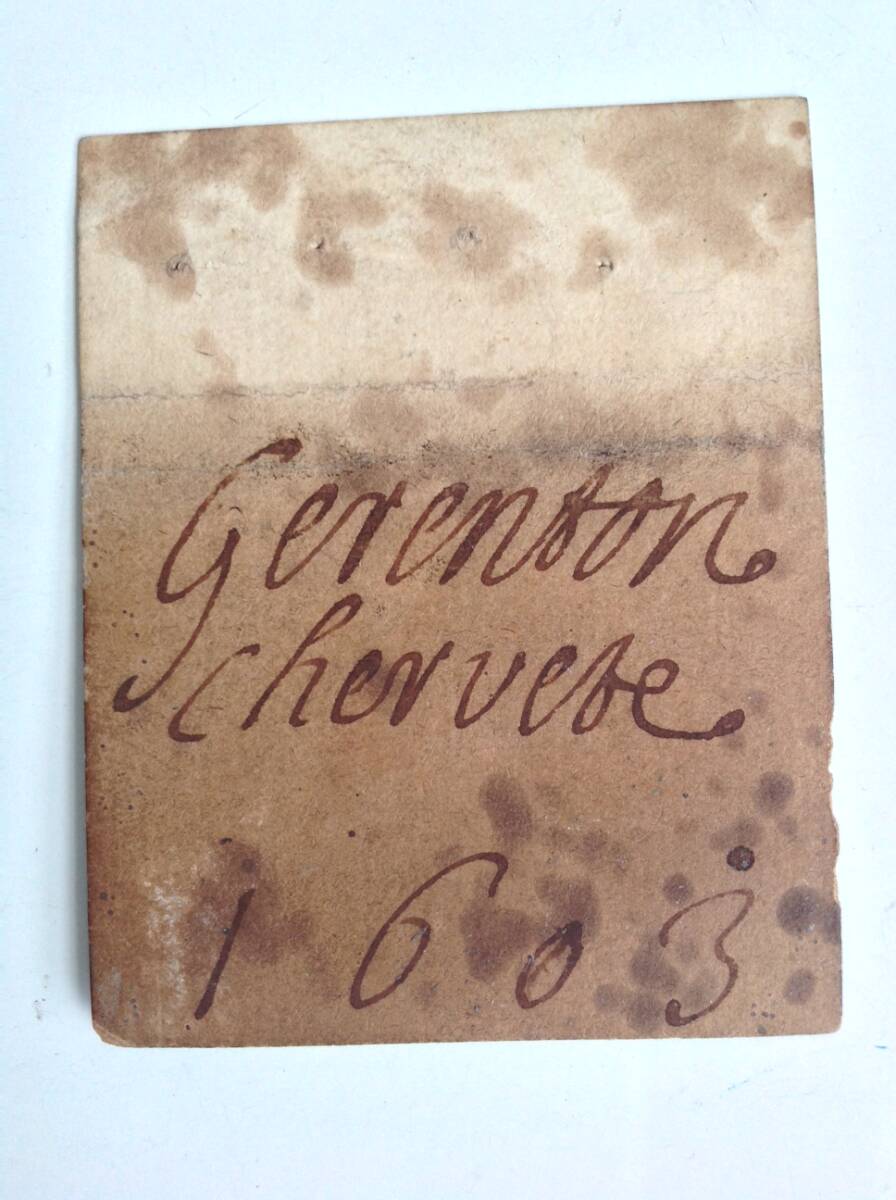 Gerenton
chervete
1603